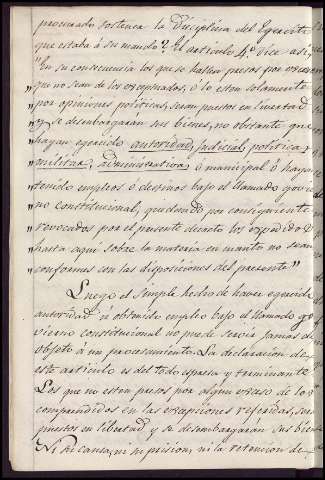 procurado sostener la Disciplina del Egercito
que estaba á su mando". El artículo 4.º dice así:
"En su consecuencia los que se hallen presos por
" que no sean de los esceptuados, ó lo esten solamente
" por opiniones políticas, seran puestos en libertad
" y se desembargarán sus bienes, no obstante que
" hayan egercido autoridad judicial, politica,
" militar, administrativa ó municipal ó hayan
" tenido empleos ó destinos bajo el llamado govierno
" no constitucional, quedando por consiguiente
" revocados por el presente decreto los expedidos
" hasta aquí sobre la materia en cuanto no sean
" conformes con las disposiciones del presente"
Luego el simple hecho de haver egercido
autoridad ú obtenido empleo bajo el llamado go
vierno constitucional no puede servir jamas de
objeto á un procesamiento. La declaracion de
este articulo es del todo espresa y terminante
Los que no esten presos por algun caso de los
comprendidos en las excepciones referidas, seran
puestos en libertad y se desembargaran sus bienes
Ni la causa, ni la prision, ni la retencion de